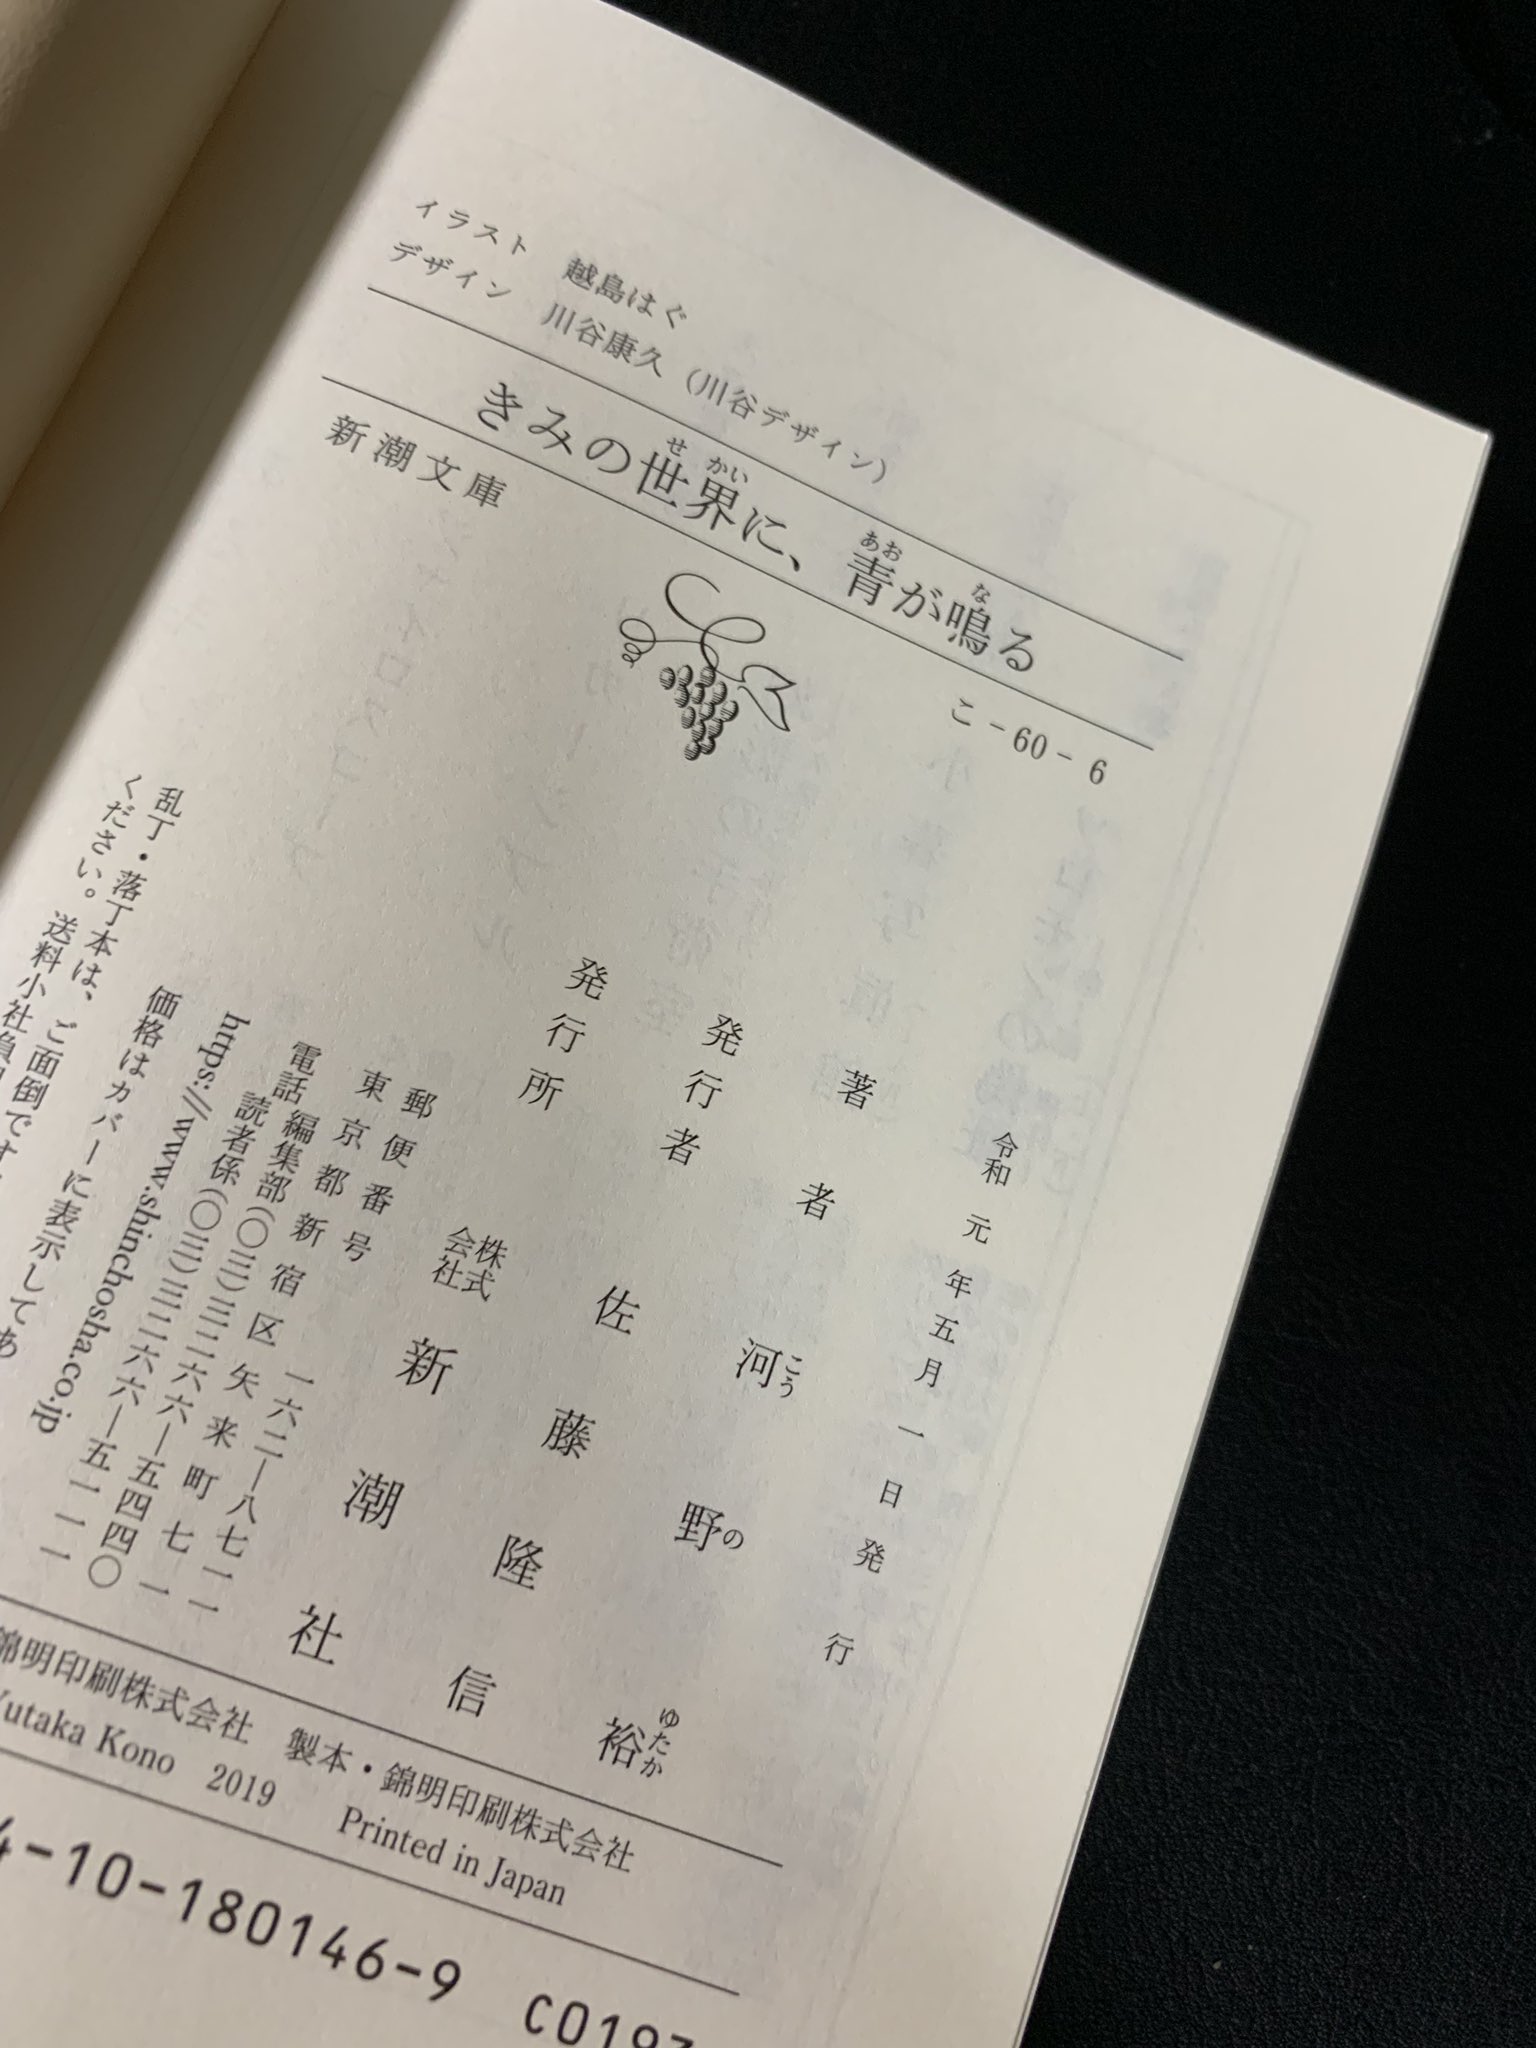 イラスト　越島はぐ
デザイン　川谷康久（川谷デザイン）
きみの世界に、青が鳴る
せかい
あお
な
新潮文庫
こ-60-6
令和元年五月一日発行
著者　河野裕
こうの
ゆたか
発行者　佐藤隆信
発行所　株式会社　新潮社
郵便番号　一六二―八七一一
東京都新宿区矢来町七一
電話編集部(〇三)三二六六―五四四〇
読者係(〇三)三二六六―五一一一
https://www.shinchosha.co.jp
価格はカバーに表示してあ
乱丁・落丁本は、ご面倒です
ください。送料小社負
錦明印刷株式会社　製本・錦明印刷株式会社
Yutaka Kono 2019　Printed in Japan
4-10-180146-9　C0193